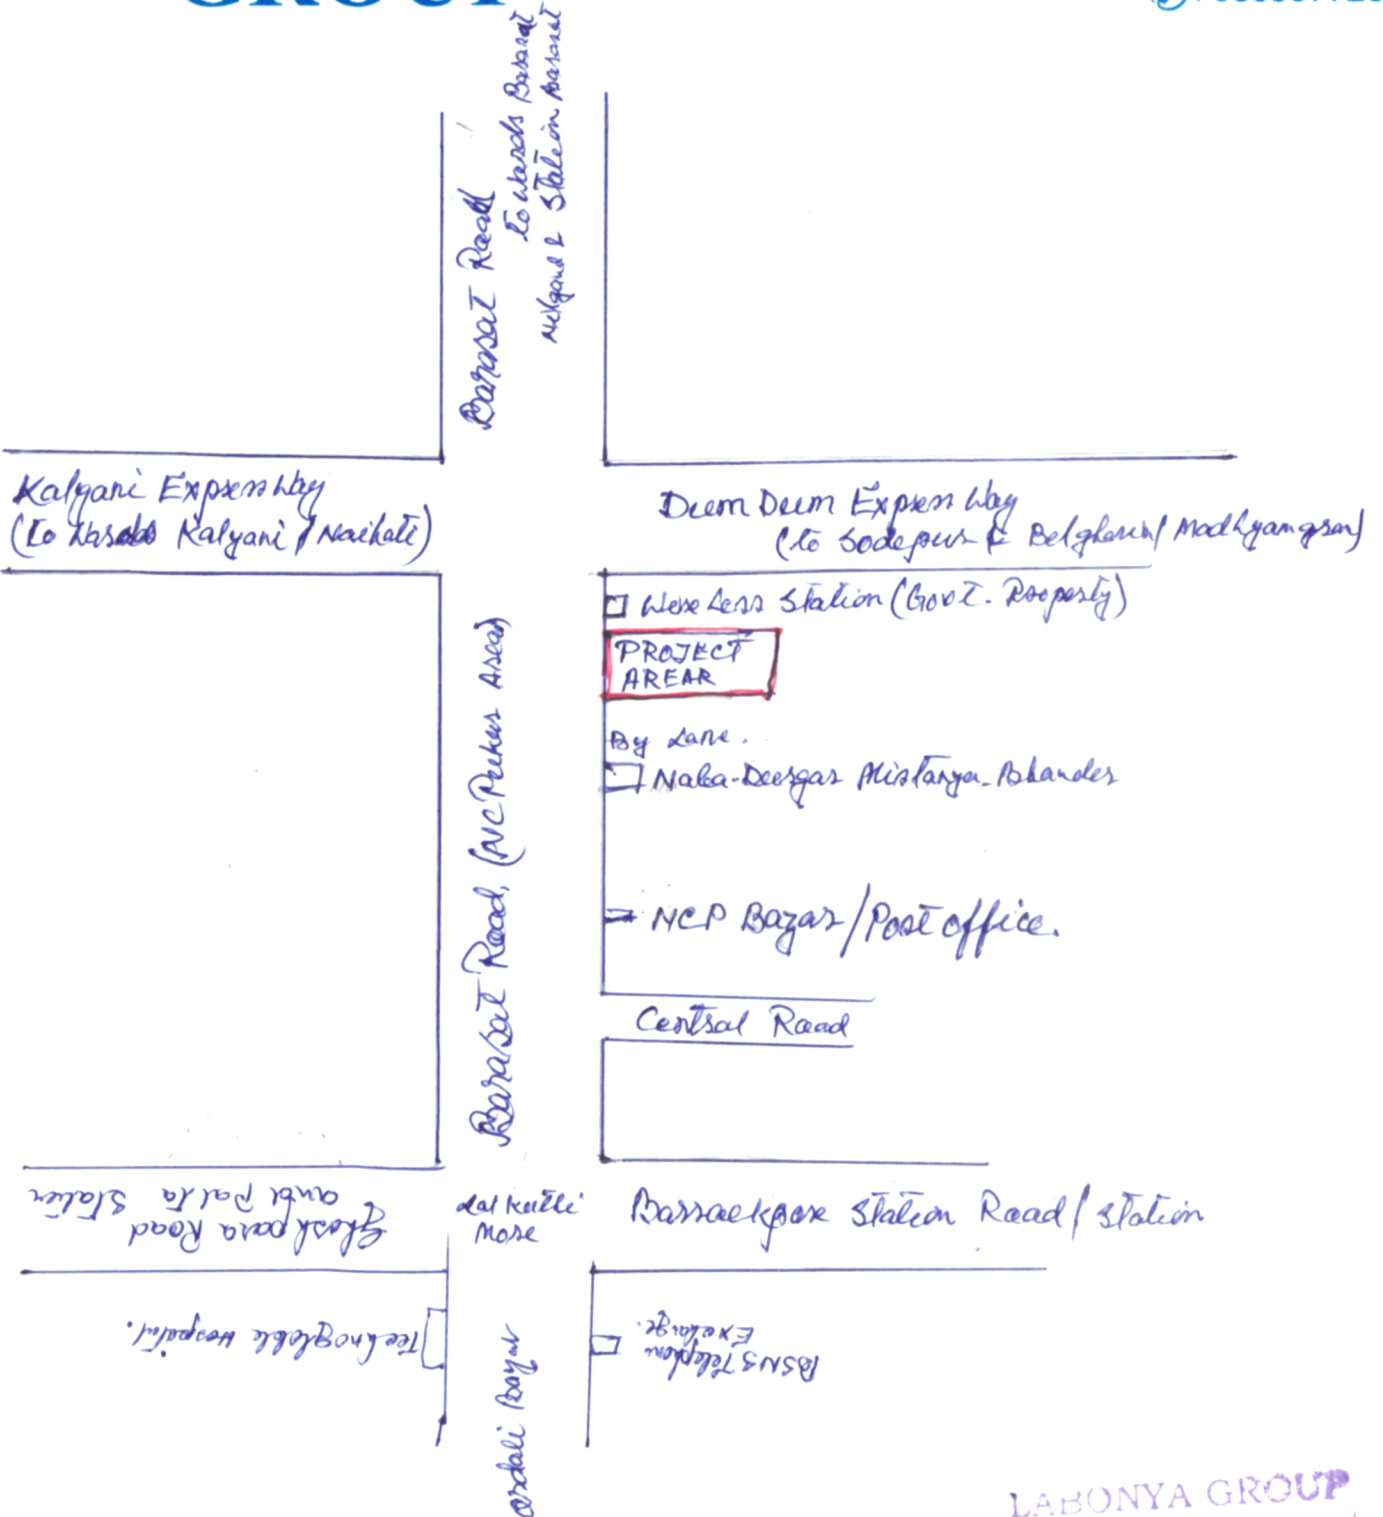 GROUP
towards Barasat
Nilgang & Station Barasat
Barasat Road
Kalyani Express Way
(to wards Kalyani / Naihati)
Dum Dum Express Way
(to Sodepur & Belgharia / Madhyamgram)
Wire Less Station (Govt. Property)
PROJECT
AREAR
By Lane.
Naba-Durga Mistanya-Bhander
Barasat Road, (NC Pukur Area)
NCP Bazar / Post office.
Central Road
Ghoshpara Road
and Palta Station
Lal kuthi
More
Barrackpore Station Road / Station
Technoglobe Hospital.
BSNS Telephon
Exchange.
ordali Bazar
LABONYA GROUP